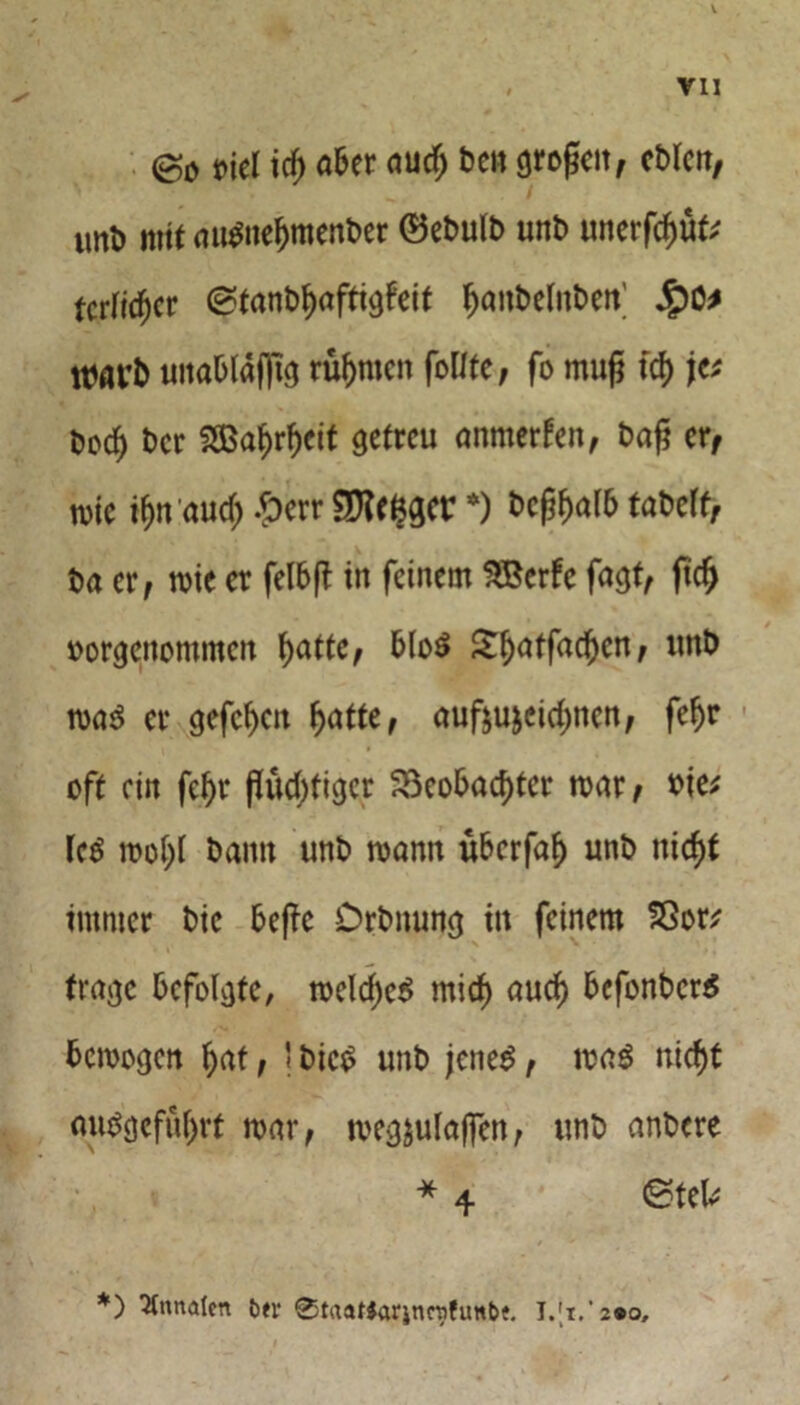 VII
So viel ich aber auch den großen, edlen,
und mit ausnehmender Geduld und unerschüt-
terlicher Standhaftigkeit handelnden Ho-
ward unablässig rühmen sollte, so muß ich je-
doch der Wahrheit getreu anmerken, daß er,
wie ihn auch Herr Metzger *) deßhalb tadelt,
da er, wie er selbst in seinem Werke sagt, sich
vorgenommen hatte, blos Thatsachen, und
was er gesehen hatte, aufzuzeichnen, sehr
oft ein sehr flüchtiger Beobachter war, vie-
les wohl dann und wann übersah und nicht
immer die beste Ordnung in seinem Vor-
trage befolgte, welches mich auch besonders
bewogen hat, dies und jenes, was nicht
ausgeführt war, wegzulassen, und andere
* 4 Stel-
*) Annalen der Staatsarzneykunde. I. 1. 200.